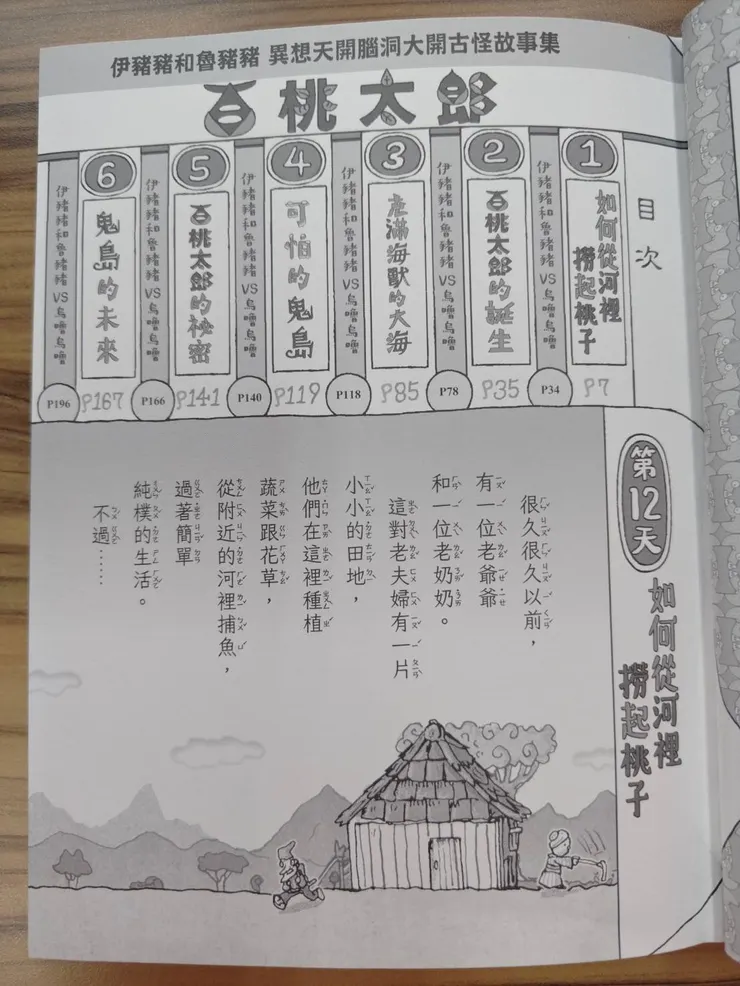 伊豬豬和魯豬豬 異想天開腦洞大開古怪故事集
百桃太郎
目次
1
如何從河裡
撈起桃子
P7
伊豬豬和魯豬豬VS烏嚕烏嚕
P34
2
百桃太郎的誕生
P35
伊豬豬和魯豬豬VS烏嚕烏嚕
P78
3
充滿海獸的大海
P85
伊豬豬和魯豬豬VS烏嚕烏嚕
P118
4
可怕的鬼島
P119
伊豬豬和魯豬豬VS烏嚕烏嚕
P140
5
百桃太郎的祕密
P141
伊豬豬和魯豬豬VS烏嚕烏嚕
P166
6
鬼島的未來
P167
伊豬豬和魯豬豬VS烏嚕烏嚕
P196
第12天
如何從河裡
撈起桃子
很久很久以前，
有一位老爺爺
和一位老奶奶。
這對老夫婦有一片
小小的田地，
他們在這裡種植
蔬菜跟花草，
從附近的河裡捕魚，
過著簡單
純樸的生活。
不過……